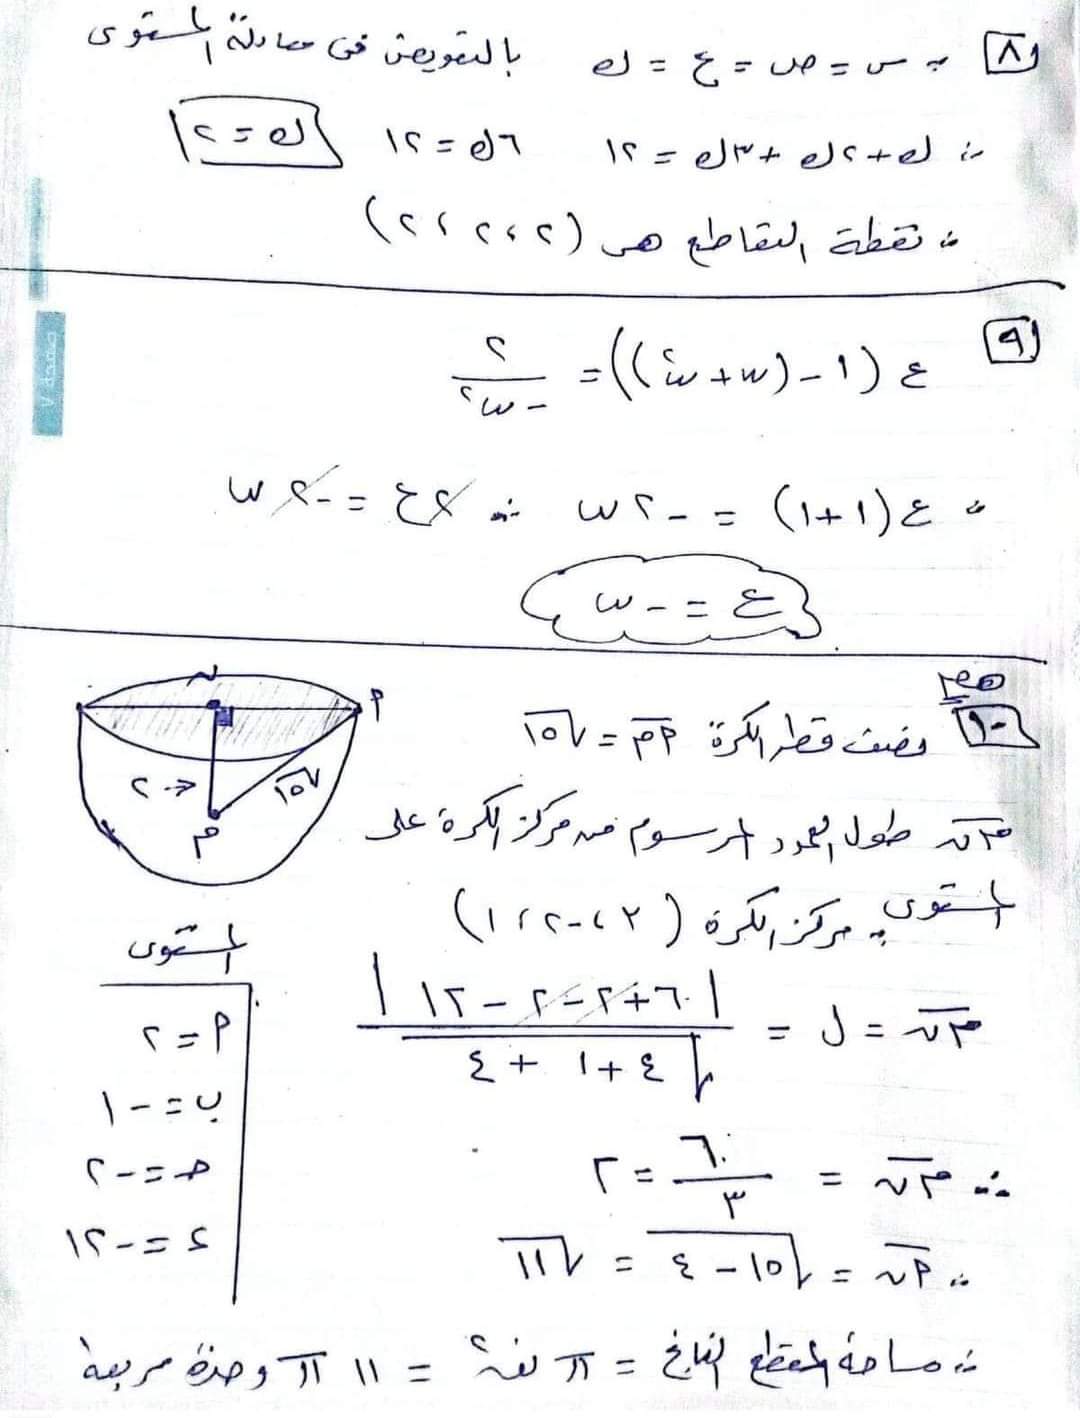 ٨ ∵ س = ص = ع = ك بالتعويض فى معادلة المستوى
∴ ك + ٢ك + ٣ك = ١٢ ٦ك = ١٢ ك = ٢
∴ نقطة التقاطع هى (٢، ٢، ٢)
صفحة ٧
٩ ع (١ - (ω + ω²)) = ٢ / -ω²
∴ ع (١+١) = -٢ω ∴ ٢ع = -٢ω
ع = -ω
هام
١٠ نصف قطر الكرة م أ = √١٥
م ن طول العمود المرسوم من مركز الكرة على
المستوى ∵ مركز الكرة (٣، -٢، ١)
م ن = ل = |٦ + ٢ - ٢ - ١٢| / √(٤ + ١ + ٤)
∴ م ن = ٦ / ٣ = ٢
∴ أ ن = √(١٥ - ٤) = √١١
∴ مساحة المقطع الناتج = π نق² = ١١ π وحدة مربعة
ن
أ
٢
√١٥
م
المستوى
أ = ٢
ب = -١
ج = -٢
د = -١٢